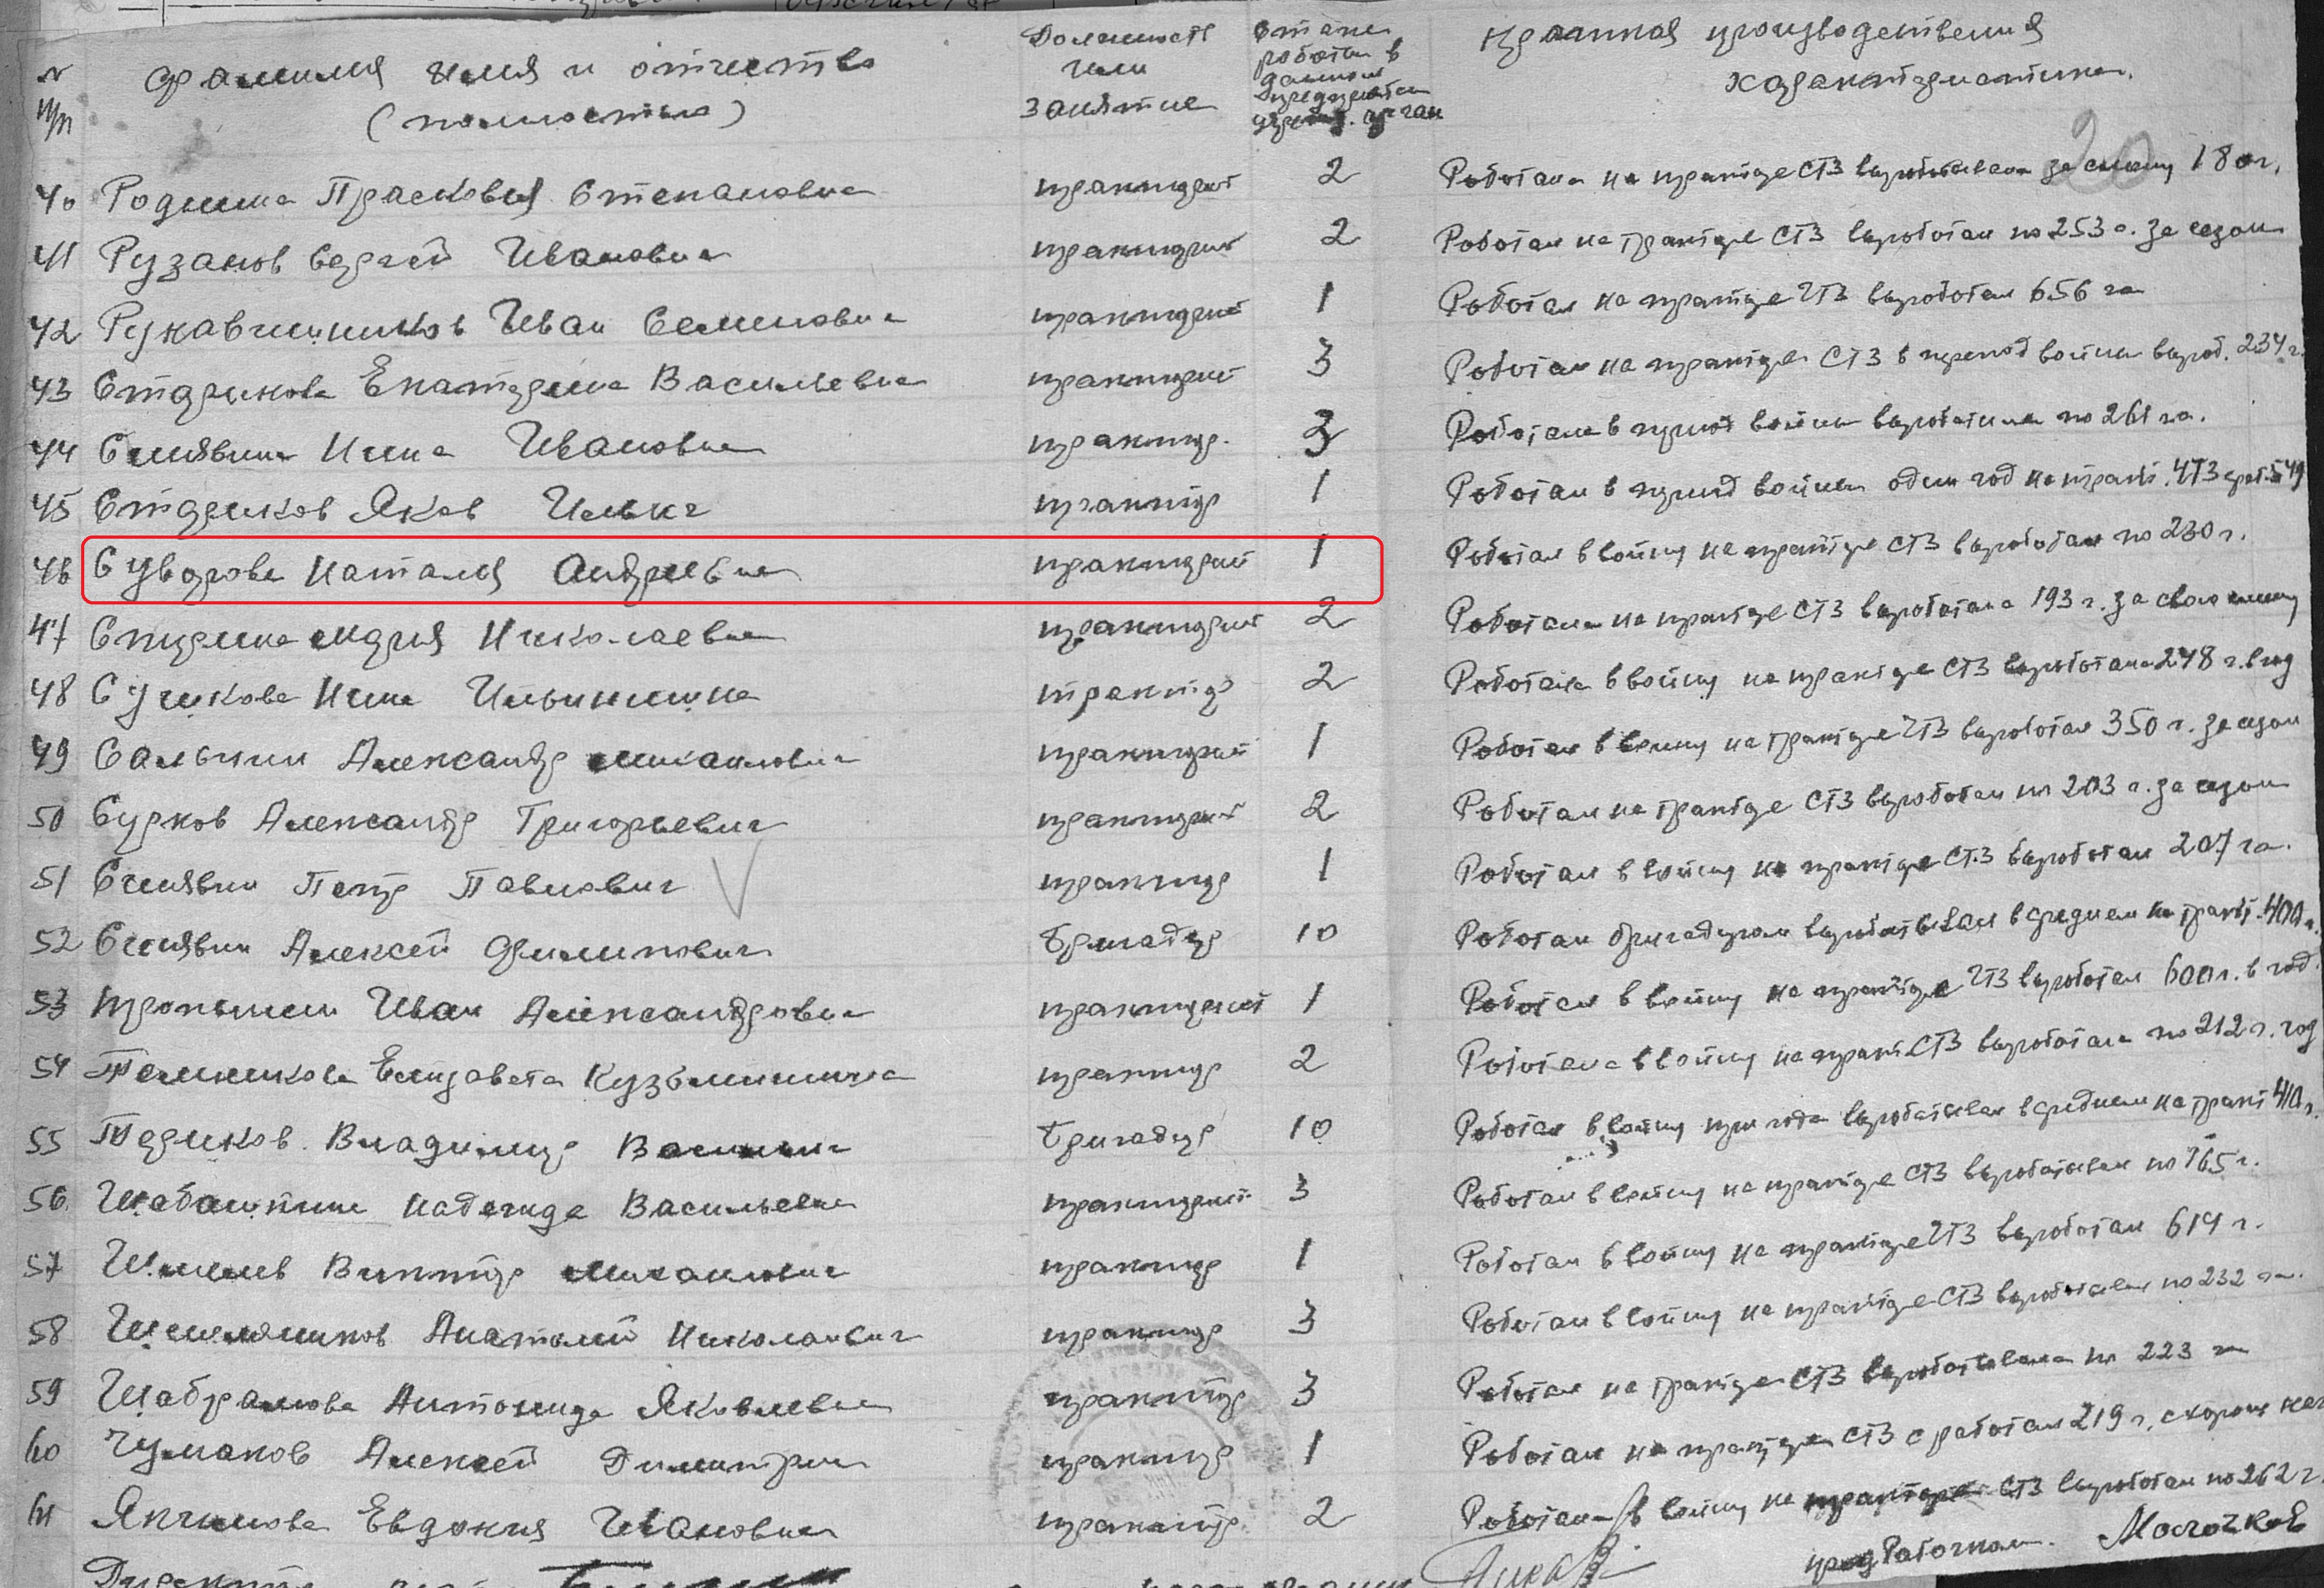 № п/п Фамилия имя и отчество (полностью) Должность или занятие Стаж работы в данном предприятии Краткая производственная характеристика.
40 Родина Прасковья Степановна тракторист 2 Работала на тракторе СТЗ вырабатывала за смену 180 г.
41 Рузанов Сергей Иванович тракторист 2 Работал на тракторе СТЗ выработал по 253 г. за сезон
42 Рукавишников Иван Семенович тракторист 1 Работал на тракторе ЧТЗ выработал 656 га
43 Старикова Екатерина Васильевна тракторист 3 Работал на тракторе СТЗ в период войны выраб. 234 г.
44 Синявина Нина Ивановна трактор. 3 Работала в период войны выработала по 261 га.
45 Стариков Яков Ильич трактор 1 Работал в период войны один год на тракт. ЧТЗ
46 Суворова Наталья Андреевна тракторист 1 Работал в войну на тракторе СТЗ выработал по 230 г.
47 Мария Николаевна тракторист 2 Работала на тракторе СТЗ выработала 193 г. за свою смену
48 Сучкова Нина Ильинична трактор 2 Работала в войну на тракторе СТЗ выработала 248 г. в год
49 Сальнин Александр Михайлович тракторист 1 Работал в войну на тракторе ЧТЗ выработал 350 г. за сезон
50 Сурков Александр Григорьевич тракторист 2 Работал на тракторе СТЗ выработал по 203 г. за сезон
51 Синявин Петр Павлович трактор 1 Работал в войну на тракторе СТЗ выработал 207 га.
52 Синявин Алексей Филипович Бригадир 10 Работал бригадиром вырабатывал в среднем на тракт. 400 г.
53 Иван Александрович тракторист 1 Работал в войну на тракторе ЧТЗ выработал 600 г. в год
54 Темникова Елизавета Кузьминична трактор 2 Работала в войну на тракт. СТЗ выработала по 212 г. год
55 Териков Владимир Васильич Бригадир 10 Работал в войну три года вырабатывал в среднем на тракт 410 г.
56 Шабашкина Надежда Васильевна тракторист 3 Работал в войну на тракторе СТЗ вырабатывал по 165 г.
57 Виктор Михайлович трактор 1 Работал в войну на тракторе ЧТЗ выработал 619 г.
58 Анатолий Николаевич трактор 3 Работал в войну на тракторе СТЗ вырабатывал по 232 га.
59 Шабрамова Антонида Яковлевна трактор 3 Работал на тракторе СТЗ вырабатывала по 223 га
60 Чумаков Алексей трактор 1 Работал на тракторе СТЗ сработал 219 г.
61 Япрынцева Евдокия Ивановна трактор 2 Работала в войну на тракторе СТЗ выработал по 262 г.
пред Рабочком. Молочков